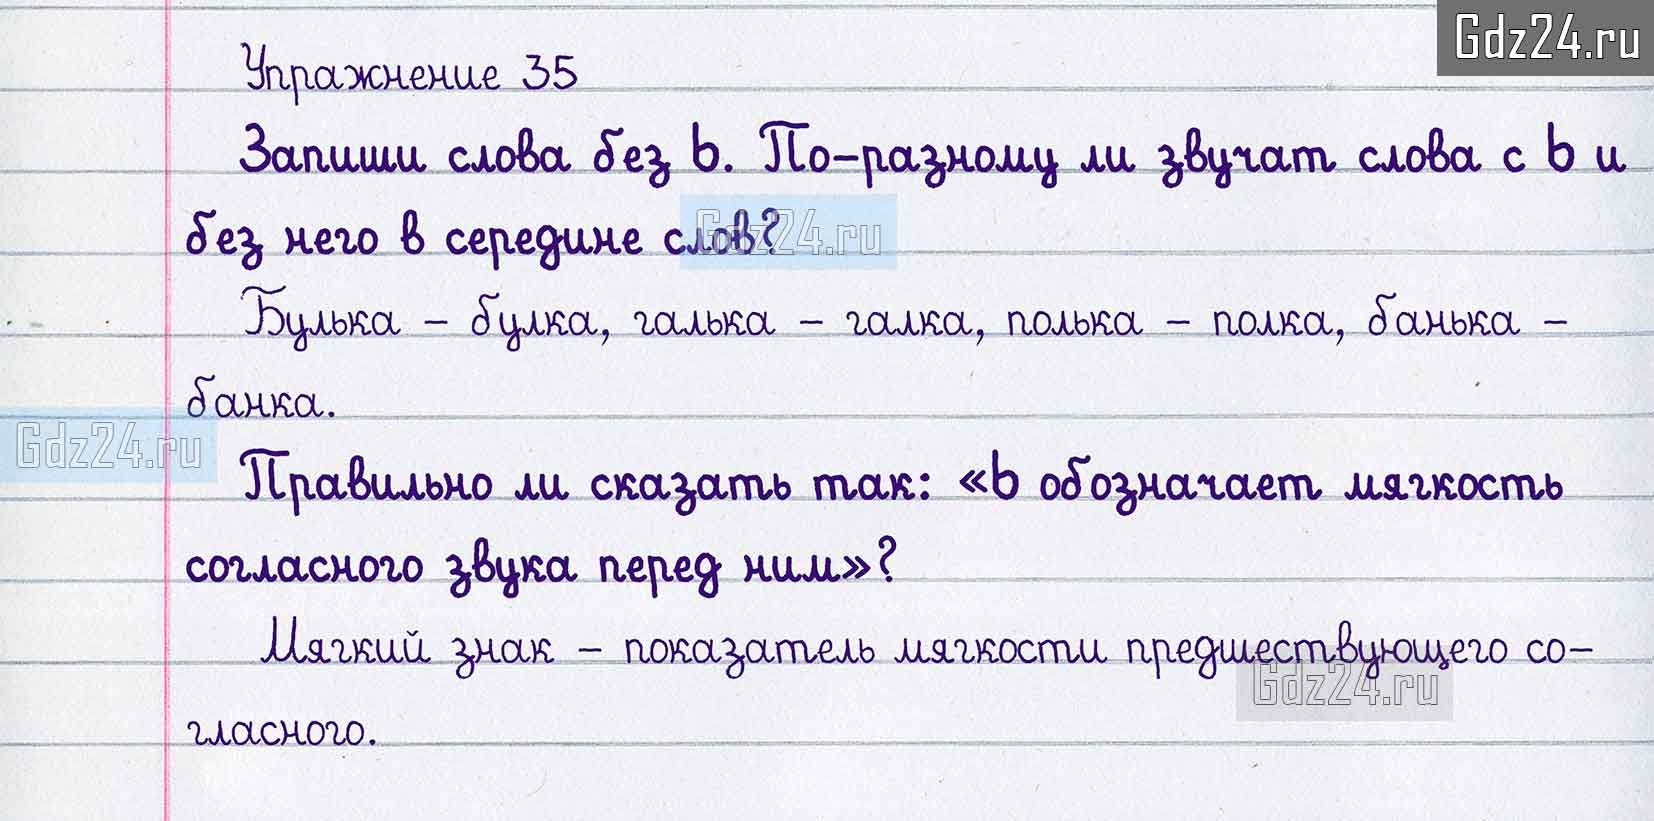 Gdz24.ru
Упражнение 35
Запиши слова без ь. По-разному ли звучат слова с ь и
без него в середине слов?
Gdz24.ru
Булька – булка, галька – галка, полька – полка, банька –
банка.
Gdz24.ru
Правильно ли сказать так: «ь обозначает мягкость
согласного звука перед ним»?
Мягкий знак – показатель мягкости предшествующего со-
Gdz24.ru
гласного.